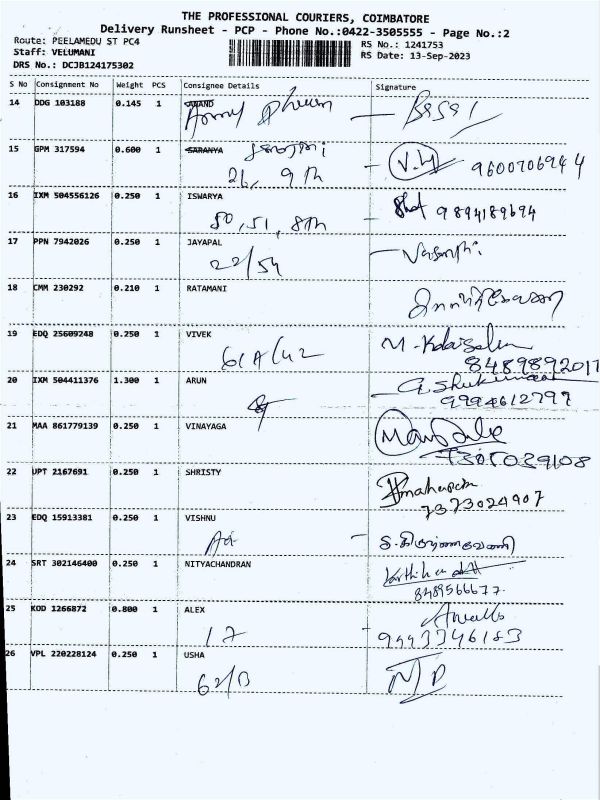 THE PROFESSIONAL COURIERS, COIMBATORE
Delivery Runsheet - PCP - Phone No.:0422-3505555 - Page No.:2
Route: PEELAMEDU ST PC4
Staff: VELUMANI
DRS No.: DCJB124175302
RS No.: 1241753
RS Date: 13-Sep-2023
S No Consignment No Weight PCS Consignee Details Signature
14 DDG 103188 0.145 1 ANAND
15 GPM 317594 0.600 1 SARANYA
26, 9th V.M 9600706944
16 IXM 504556126 0.250 1 ISWARYA
50, 51, 8th 9894189694
17 PPN 7942026 0.250 1 JAYAPAL
22/54
18 CMM 230292 0.210 1 RATAMANI
19 EDQ 25609248 0.250 1 VIVEK
61A/42 8489892017
20 IXM 504411376 1.300 1 ARUN
9994612797
21 MAA 861779139 0.250 1 VINAYAGA
7305039108
22 UPT 2167691 0.250 1 SHRISTY
7373024907
23 EDQ 15913381 0.250 1 VISHNU
24 SRT 302146400 0.250 1 NITYACHANDRAN
8489566677
25 KOD 1266872 0.800 1 ALEX
17 9443346183
26 VPL 220228124 0.250 1 USHA
62/B